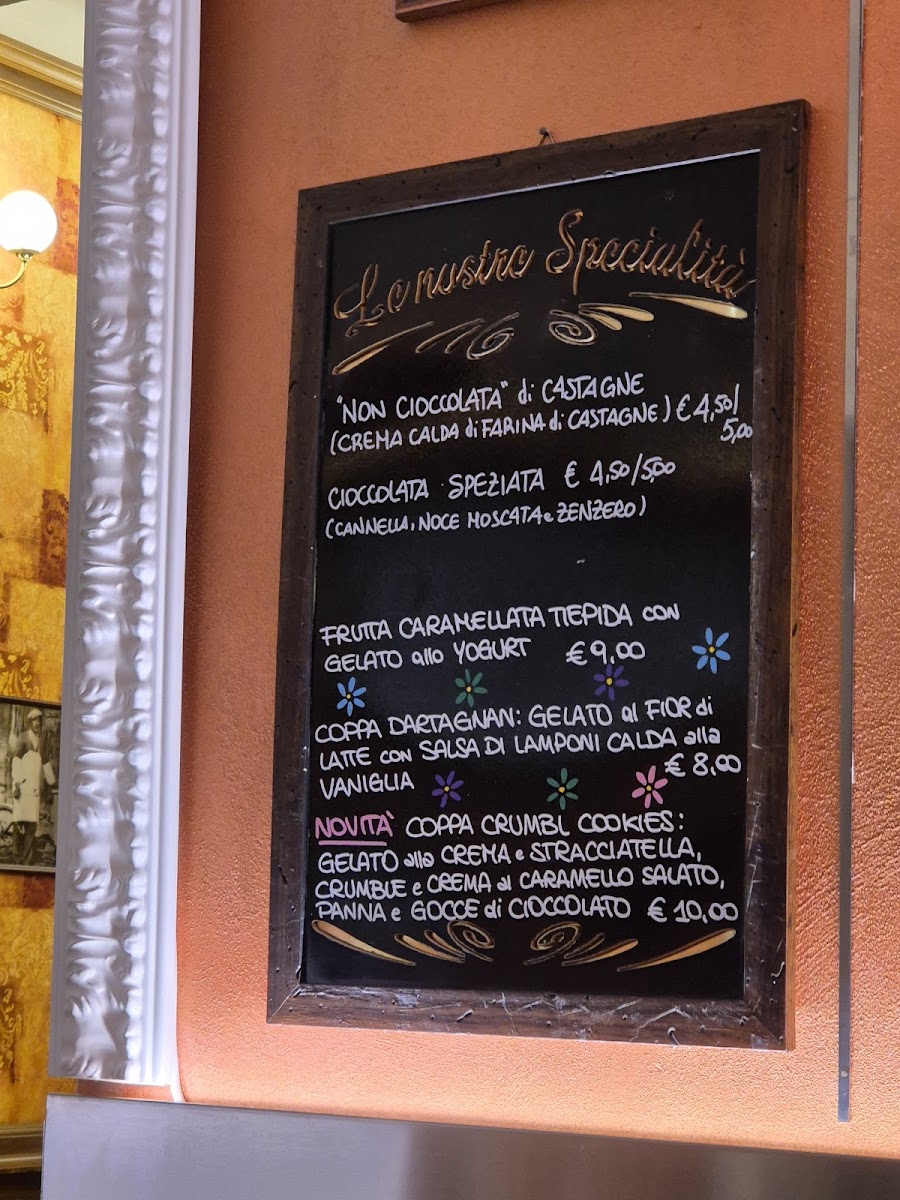 Le nostre Specialità
"NON CIOCCOLATA" di CASTAGNE
(CREMA CALDA di FARINA di CASTAGNE) € 4,50/
5,00
CIOCCOLATA SPEZIATA € 4,50/5,00
(CANNELLA, NOCE MOSCATA e ZENZERO)
FRUTTA CARAMELLATA TIEPIDA con
GELATO allo YOGURT € 9,00
COPPA DARTAGNAN: GELATO al FIOR di
LATTE con SALSA DI LAMPONI CALDA alla
VANIGLIA € 8,00
NOVITÀ COPPA CRUMBL COOKIES:
GELATO alla CREMA e STRACCIATELLA,
CRUMBLE e CREMA al CARAMELLO SALATO,
PANNA e GOCCE di CIOCCOLATO € 10,00